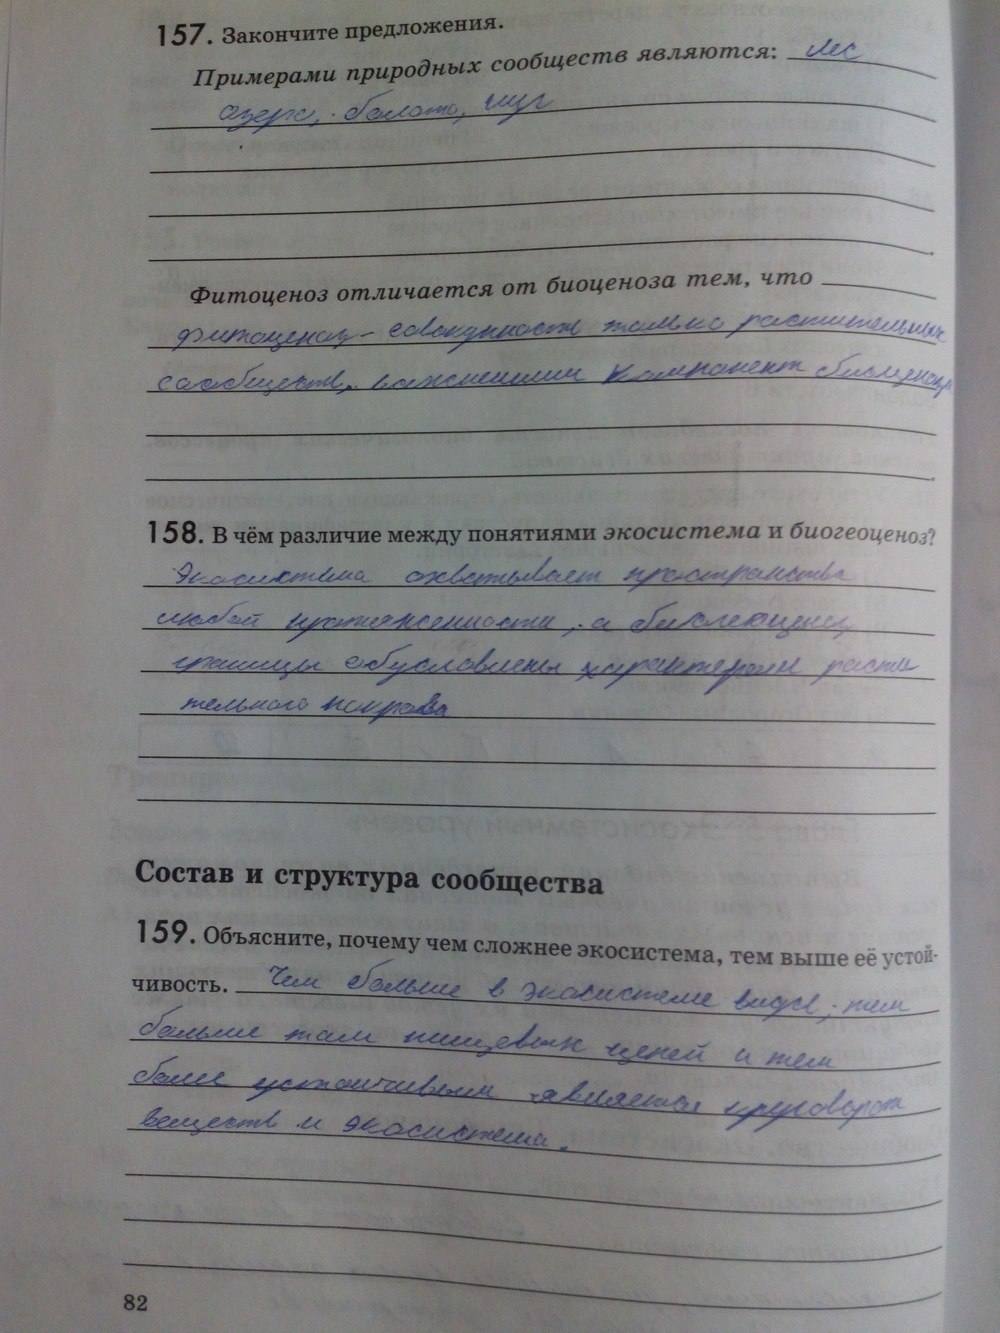 157. Закончите предложения.
Примерами природных сообществ являются: лес
озеро, болото, луг
Фитоценоз отличается от биоценоза тем, что
фитоценоз - совокупность только растительных
сообществ, важнейший компонент биоценоза
158. В чём различие между понятиями экосистема и биогеоценоз?
Экосистема охватывает пространства
любой протяженности, а биогеоценоз
границы обусловлены характером расти
тельного покрова
Состав и структура сообщества
159. Объясните, почему чем сложнее экосистема, тем выше её устой-
чивость. Чем больше в экосистеме видов, тем
больше там пищевых цепей и тем
более устойчивым является круговорот
веществ и экосистема.
82